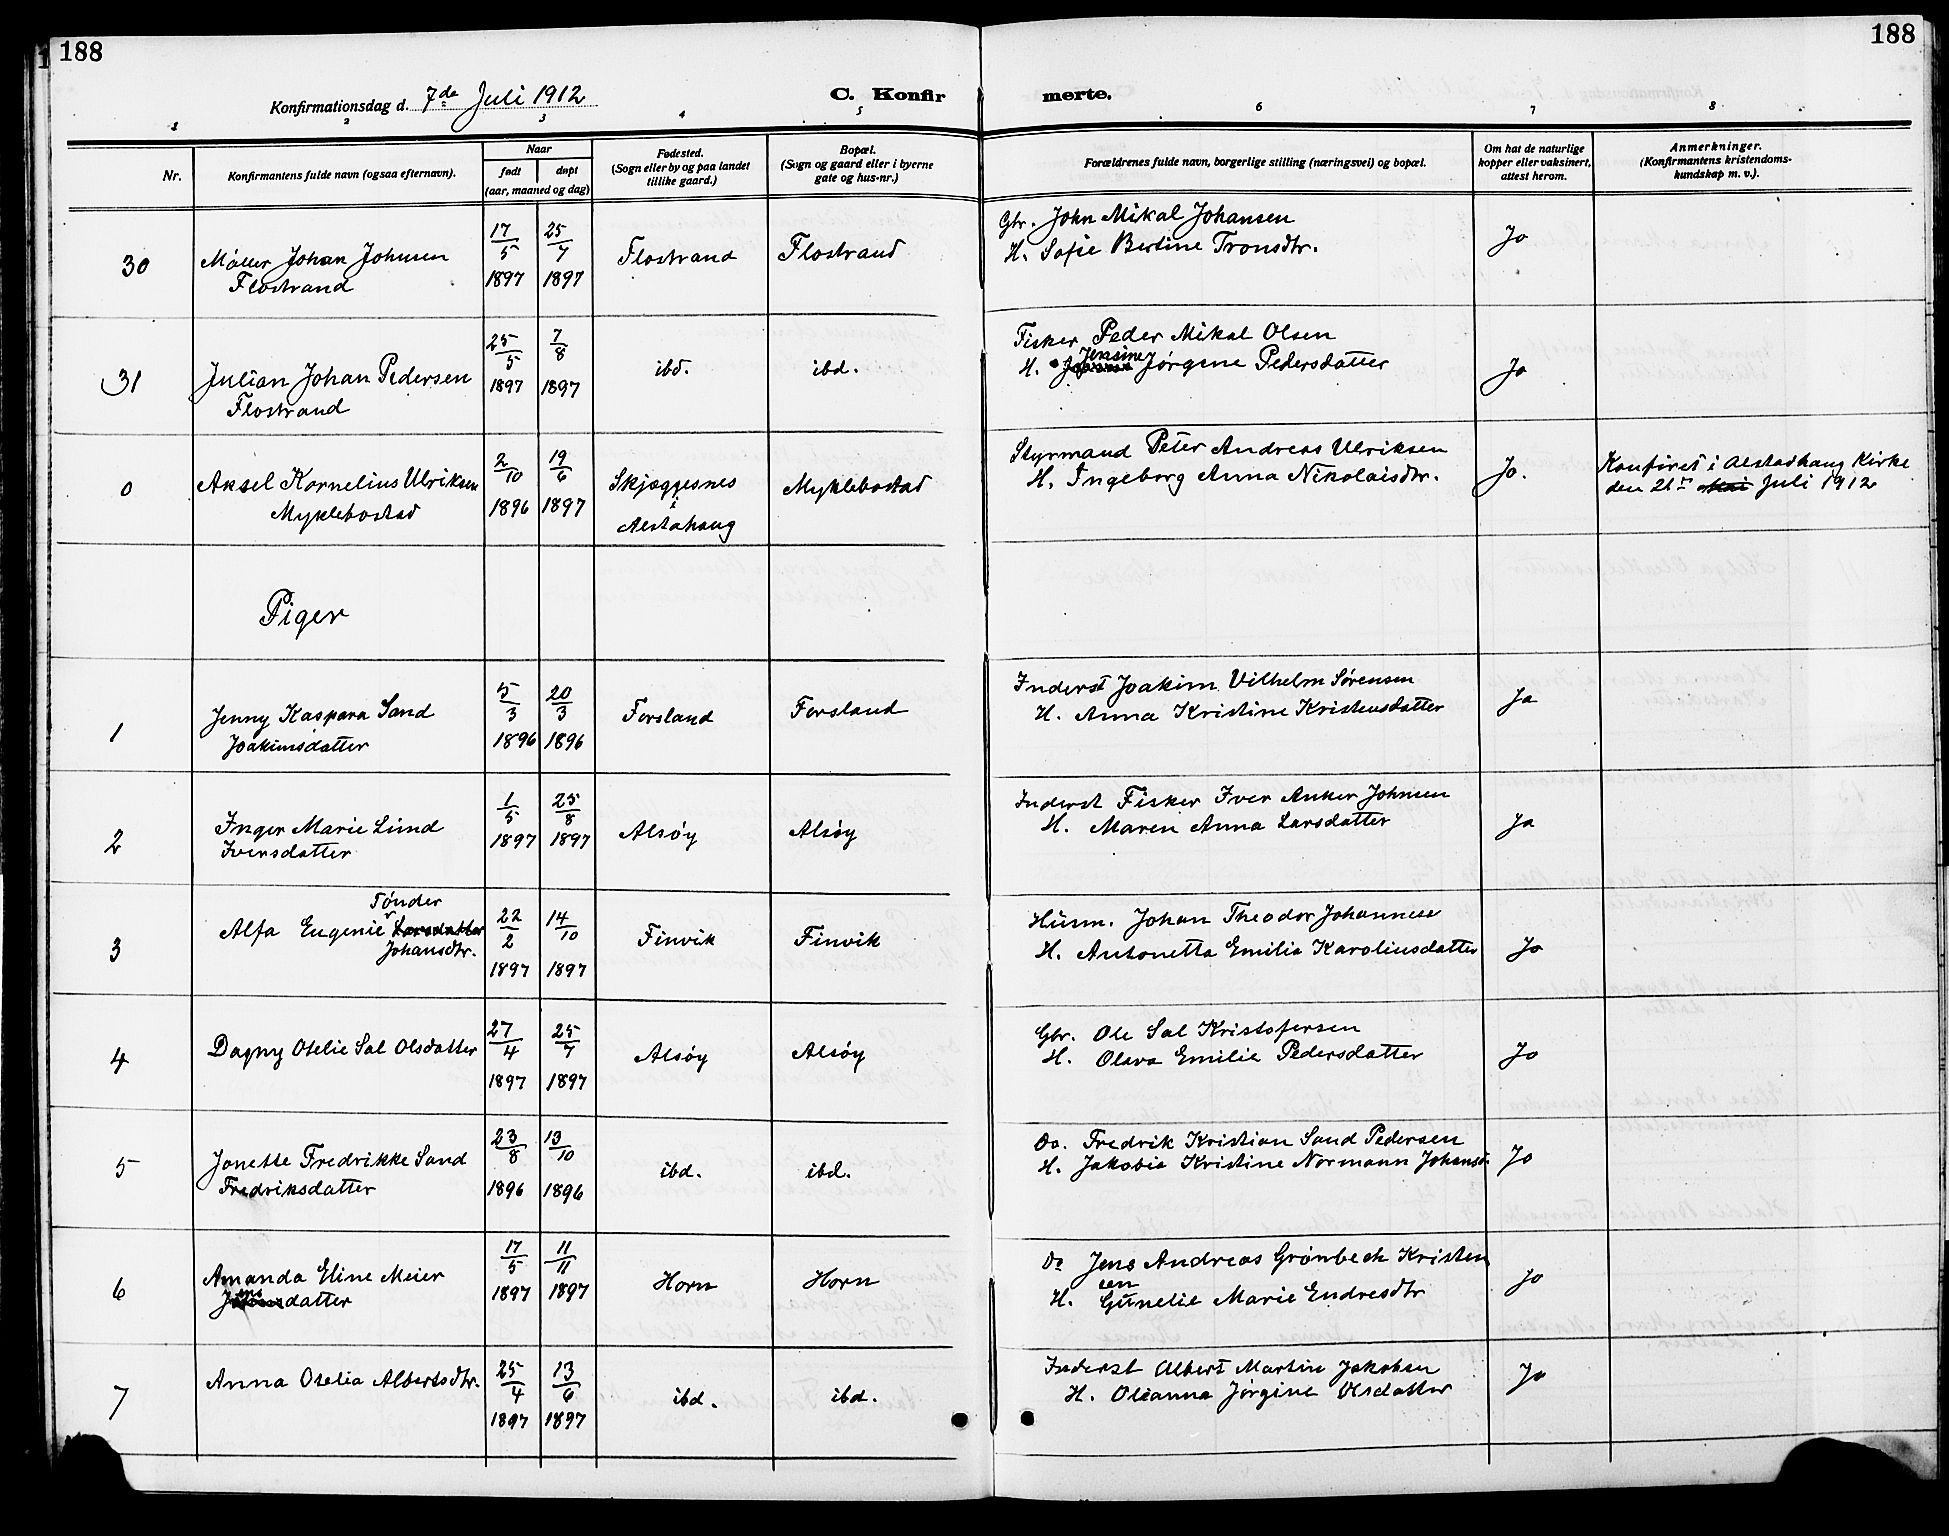 188
188
Konfirmationsdag d. 7de Juli 1912
C. Konfirmerte.
1 2 3 4 5 6 7 8
Nr.
Konfirmantens fulde navn (ogsaa efternavn).
Naar
født
døpt
(aar, maaned og dag)
Fødested.
(Sogn eller by og paa landet
tillike gaard.)
Bopæl.
(Sogn og gaard eller i byerne
gate og hus-nr.)
Forældrenes fulde navn, borgerlige stilling (næringsvei) og bopæl.
Om hat de naturlige
kopper eller vaksinert,
attest herom.
Anmerkninger.
(Konfirmantens kristendoms-
kundskap m. v.).
30 Møller Johan Johnsen 17/5 1897 25/7 1897 Flostrand Flostrand Gbr. John Mikal Johansen Ja
Flostrand H. Sofie Bertine Tronsdtr.
31 Julian Johan Pedersen 25/5 1897 7/8 1897 ibd. ibd. Fisker Peder Mikal Olsen Ja
Flostrand H. Jensine Jørgine Pedersdatter
0 Aksel Kornelius Ulriksen 2/10 1896 19/6 1897 Skjeggesnes i Alstahaug Myklebostad Styrmand Peter Andreas Ulriksen Ja. Konfiret i Alstadhaug Kirke
Myklebostad H. Ingeborg Anna Nikolaisdtr. den 21de Mai Juli 1912
Piger
1 Jenny Kaspara Sand 5/3 1896 20/3 1896 Forsland Forsland Inderst Joakim Vilhelm Sørensen Ja
Joakimsdatter H. Anna Kristine Kristensdatter
2 Inger Marie Lind 1/5 1897 25/8 1897 Alsøy Alsøy Inderst Fisker Iver Anker Johnsen Ja
Iversdatter H. Maren Anna Larsdatter
3 Alfa Eugenie Tønder Larsdatter 22/2 1897 14/10 1897 Finvik Finvik Husm. Johan Theodor Johannese Ja
Johansdtr. H. Antonetta Emilia Karoliusdatter
4 Dagny Otelie Sal Olsdatter 27/4 1897 25/7 1897 Alsøy Alsøy Gbr. Ole Sal Kristofersen Ja
H. Olava Emilie Pedersdatter
5 Jonette Fredrikke Sand 23/8 1896 13/10 1896 ibd. ibd. Do. Fredrik Kristian Sand Pedersen Ja
Fredriksdatter H. Jakobia Kristine Normann Johansd.
6 Amanda Eline Meier 17/5 1897 11/11 1897 Horn Horn Do Jens Andreas Grønbech Kristen
sen Ja
Jensdatter H. Gunelie Marie Endresdtr
7 Anna Otelia Albertsdtr. 25/4 1897 13/6 1897 ibd. ibd. Inderst Albert Martin Jakobsen Ja
H. Oleanna Jørgine Olsdatter